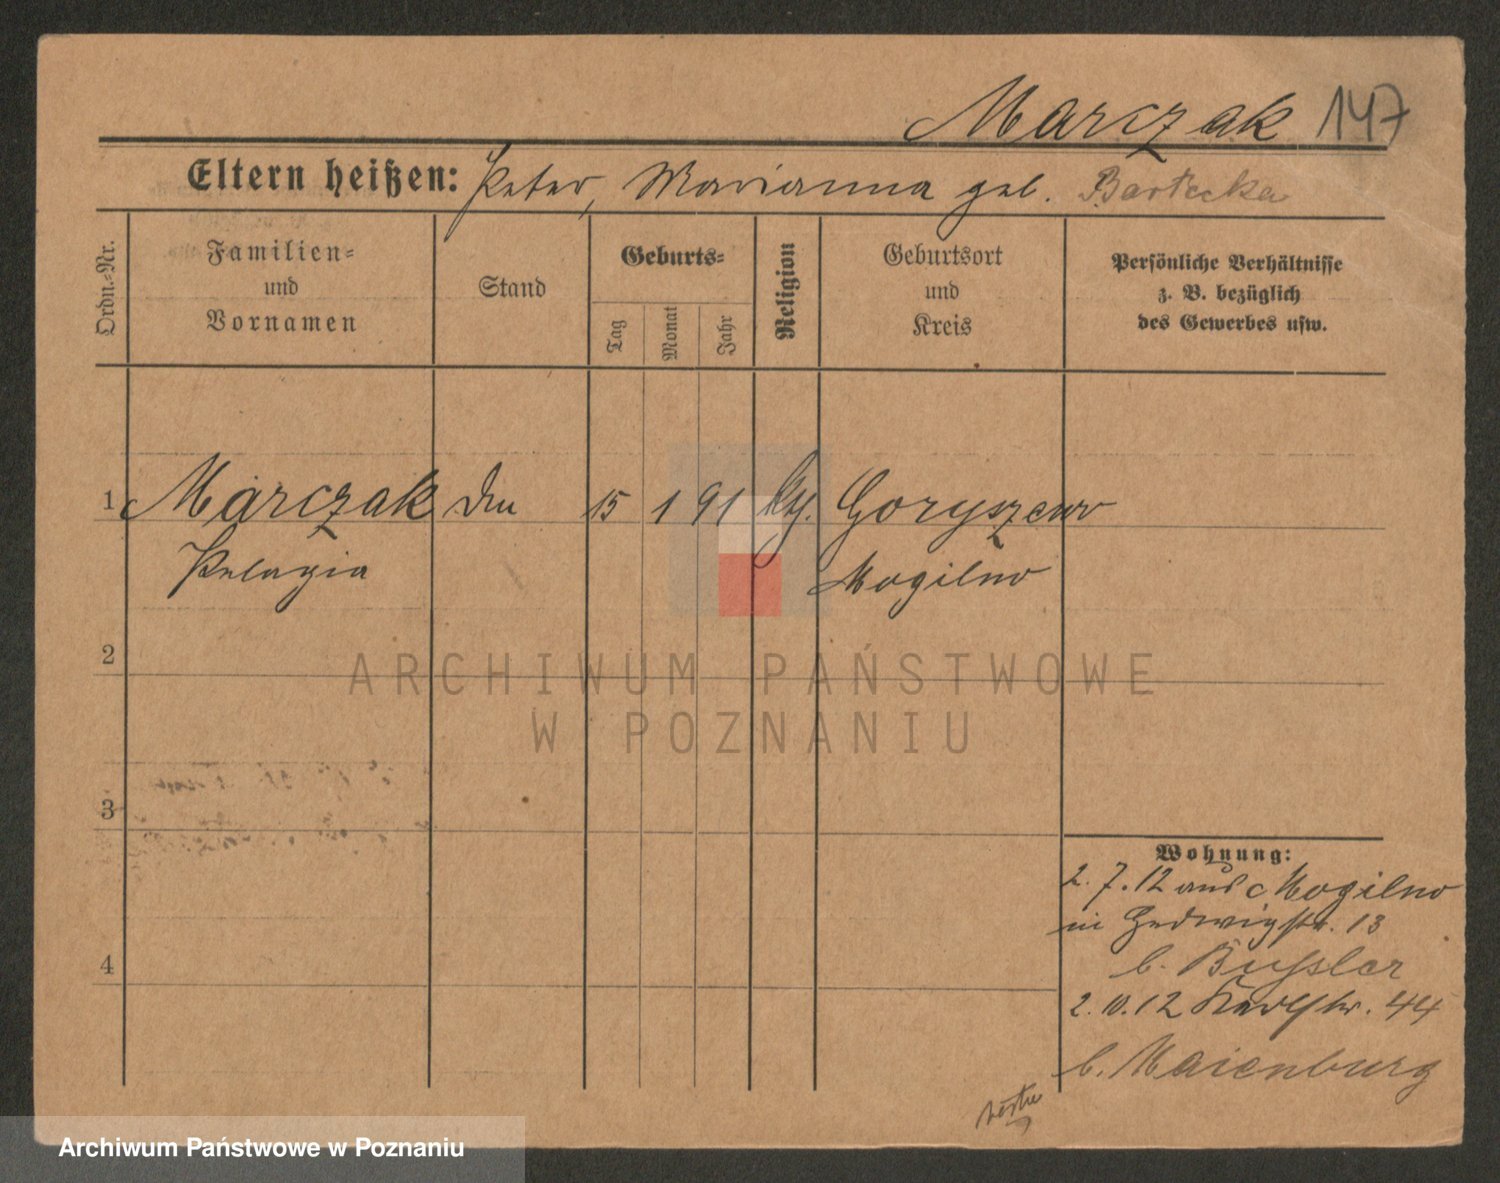 Marczak 147
Eltern heißen: Peter, Marianna geb. Bartecka
Ordn.-Nr.
Familien-
und
Vornamen
Stand
Geburts-
Tag
Monat
Jahr
Religion
Geburtsort
und
Kreis
Persönliche Verhältnisse
z. B. bezüglich
des Gewerbes usw.
1 Marczak 15 1 91 Goryszewo
Pelagia Mogilno
2
3
4
Wohnung:
2. 7. 12 aus Mogilno
in Hedwigstr. 13
b. Bußler
2. 10. 12 Karlstr. 44
b. Maienburg
ARCHIWUM PAŃSTWOWE
W POZNANIU
Archiwum Państwowe w Poznaniu